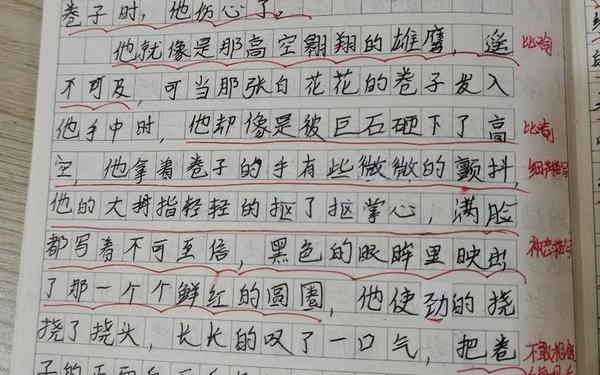 卷子时，他伤心了。
他就像是那高空翱翔的雄鹰，遥 比喻
不可及，可当那张白花花的卷子发入
他手中时，他却像是被巨石砸下了高 比喻
空，他拿着卷子的手有些微微的颤抖， 细节描写
他的大拇指轻轻的抠了抠掌心，满脸
都写着不可至信，黑色的眼眸里映出 神态描写
了那一个个鲜红的圆圈，他使劲的挠
挠了挠头，长长的叹了一口气，把卷 不敢相信